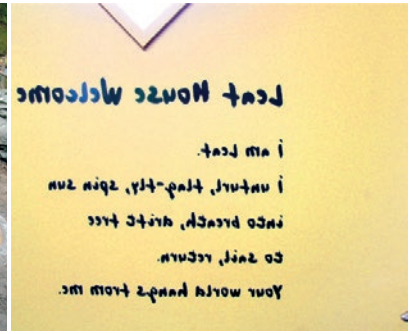 Leaf House Welcome
i am Leaf.
i unfurl, flag-fly, spin sun
into breath, drift free
to soil, return.
Your world hangs from me.